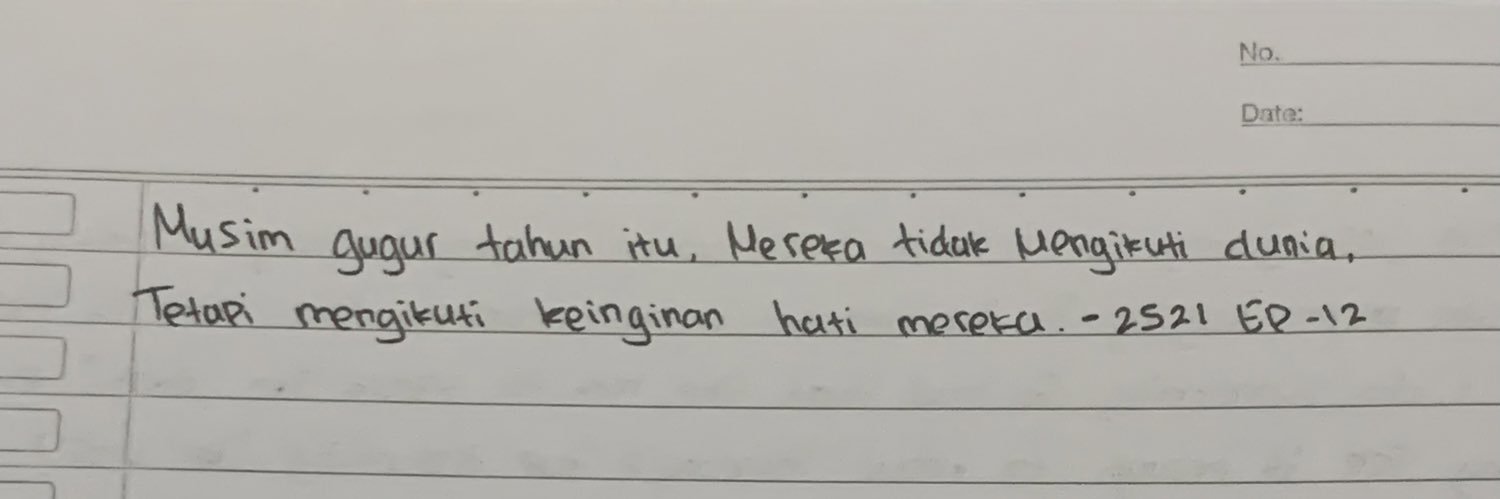 No.
Date:
Musim gugur tahun itu, Mereka tidak Mengikuti dunia,
Tetapi mengikuti keinginan hati mereka. - 2521 EP -12